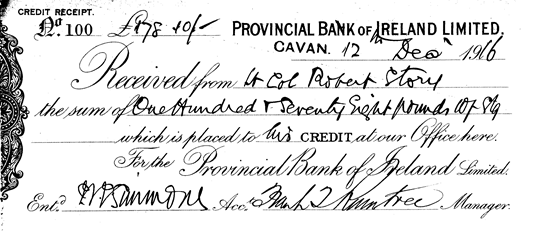 CREDIT RECEIPT.
No. 100 £178 10/- PROVINCIAL BANK OF IRELAND LIMITED.
CAVAN. 12th Decr 1916
Received from Lt Col Robert Story
the sum of One Hundred & Seventy Eight pounds
which is placed to his CREDIT at our Office here.
For the Provincial Bank of Ireland Limited.
Entd. Acct. Frank Manager.